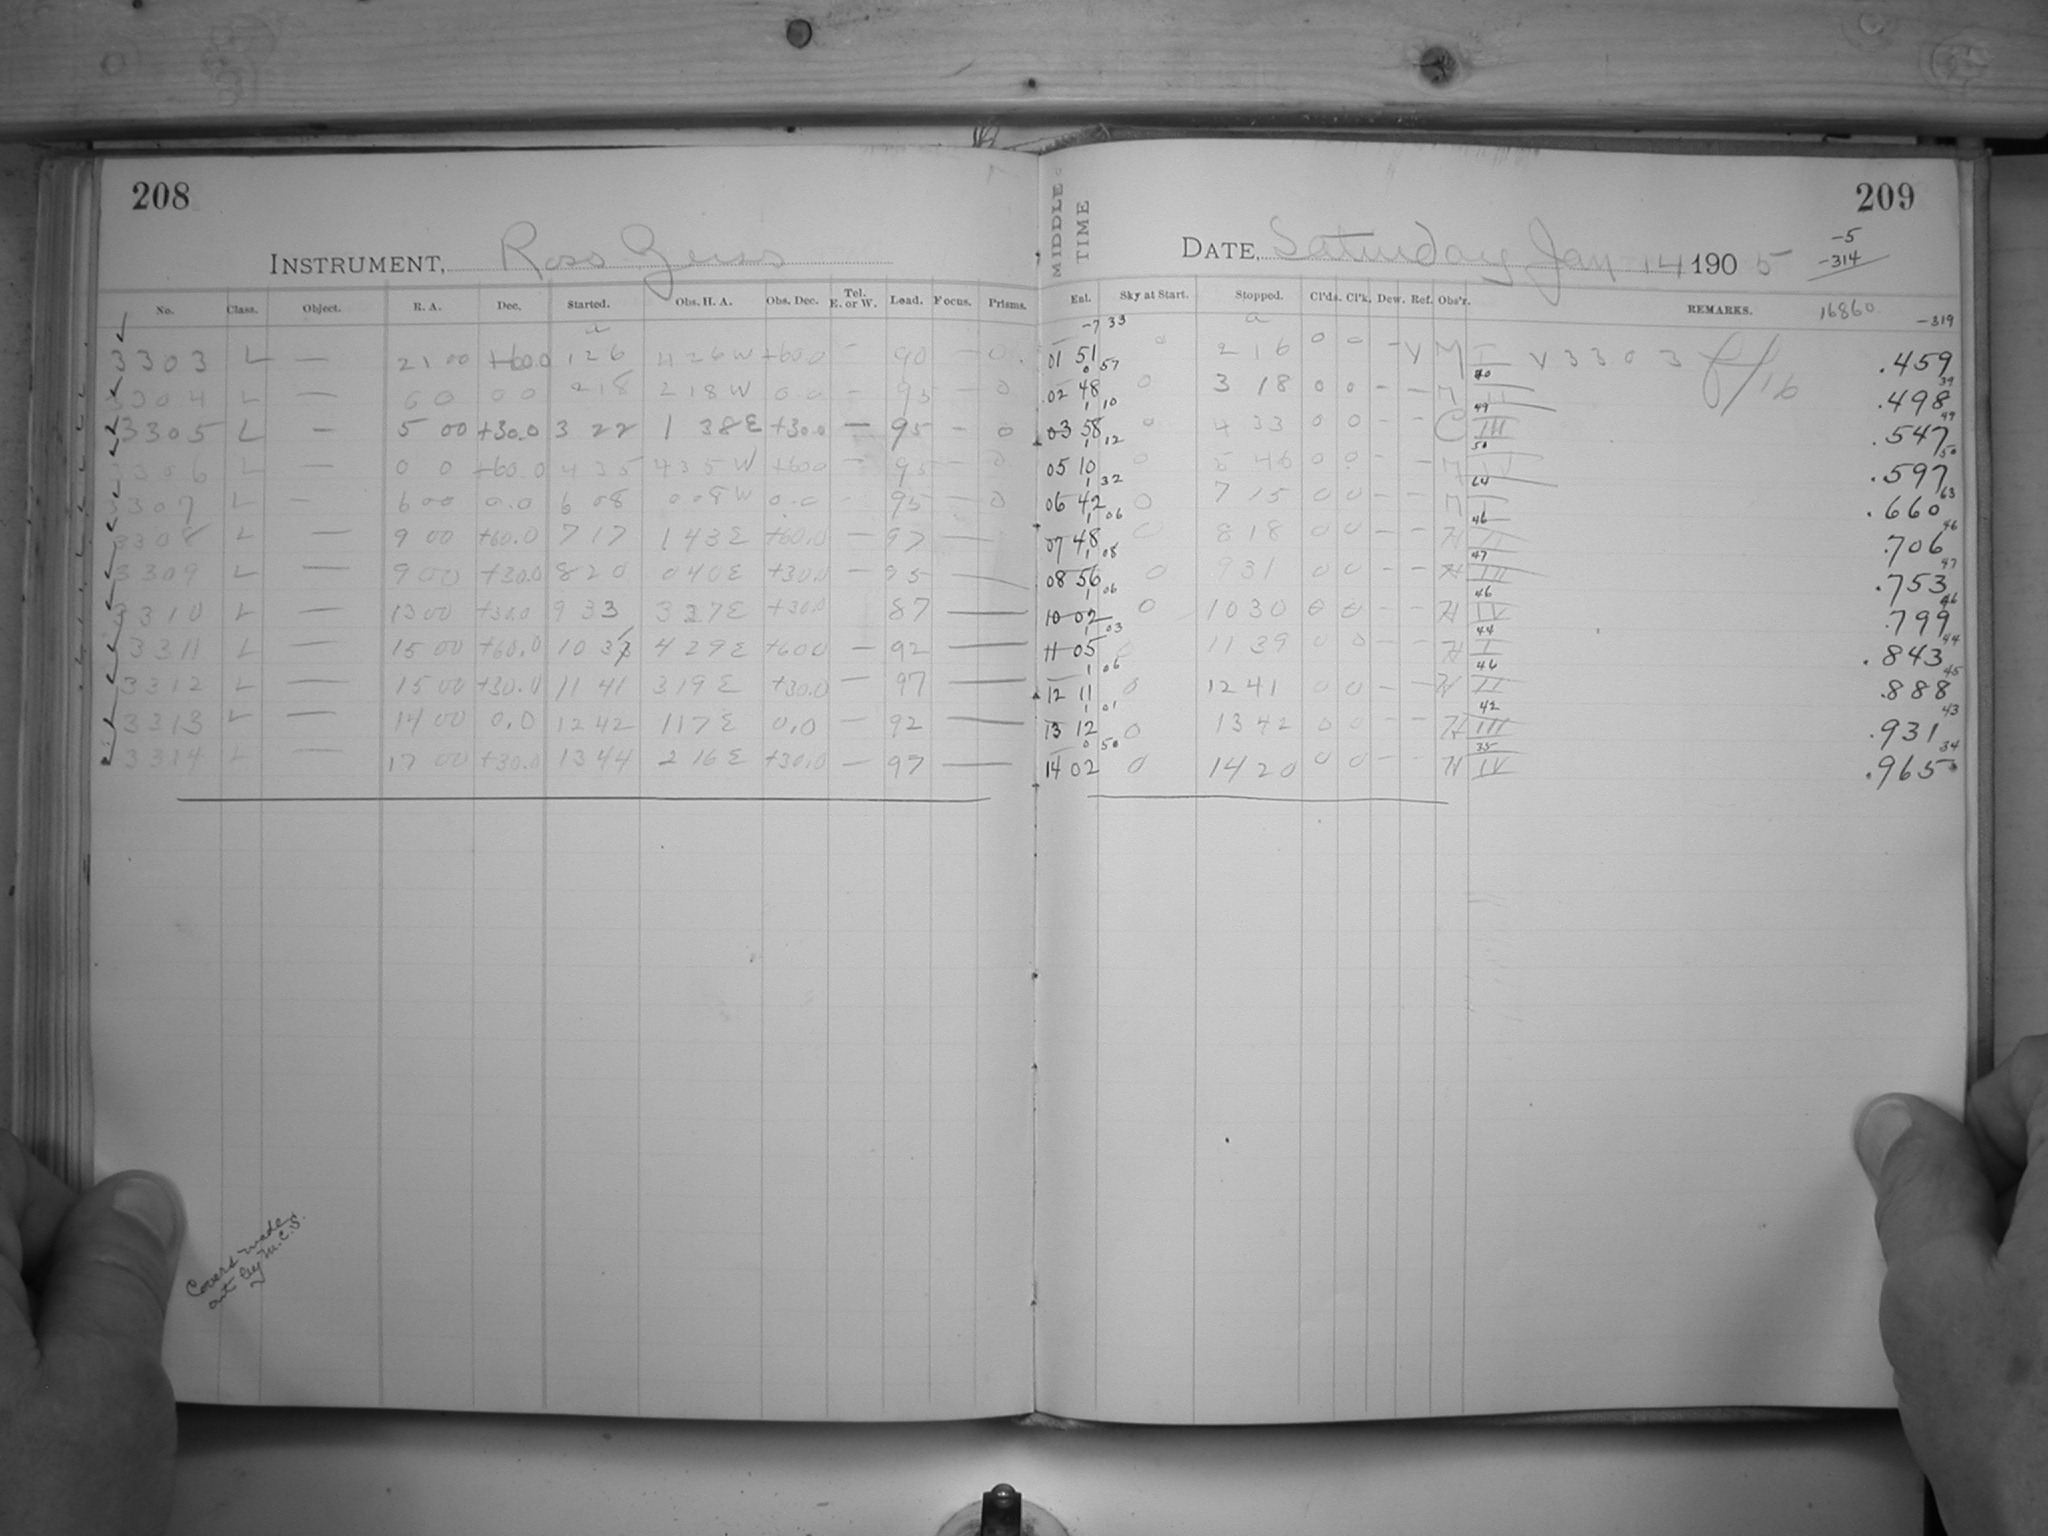 208
INSTRUMENT, Ross Zeiss
No. Class. Object. R. A. Dec. Started. Obs. H. A. Obs. Dec. Tel. E. or W. Load. Focus. Prisms.
3303 L — 21 00 +60.0 1 26 4 26 W +60.0 - 90 — 0
3304 L — 0 0 0 0 2 18 2 18 W 0.0 - 95 — 0
3305 L — 5 00 +30.0 3 22 1 38 E +30.0 — 95 - 0
3306 L — 0 0 +60.0 4 35 4 35 W +60.0 — 95 — 0
3307 L — 6 00 0.0 6 08 0 08 W 0.0 - 95 — 0
3308 L — 9 00 +60.0 7 17 1 43 E +60.0 — 97 —
3309 L — 9 00 +30.0 8 20 0 40 E +30.0 — 95 —
3310 L — 13 00 +30.0 9 33 3 27 E +30.0 87 —
3311 L — 15 00 +60.0 10 33 4 29 E +60.0 — 92 —
3312 L — 15 00 +30.0 11 41 3 19 E +30.0 — 97 —
3313 L — 14 00 0.0 12 42 1 17 E 0.0 — 92 —
3314 L — 17 00 +30.0 13 44 2 16 E +30.0 — 97 —
Covers made
out by M.C.S.
209
MIDDLE
TIME
DATE, Saturday Jan 14 1905
-5
-314
Ent. Sky at Start. Stopped. Cl'ds. Cl'k. Dew. Ref. Obs'r. REMARKS. 16860 -319
-7 33 a
01 51 0 2 16 0 0 - V M I V 3303 f/16 .459
0 57 40 39
02 48 0 3 18 0 0 - - M II .498
1 10 49 49
03 58 0 4 33 0 0 - - C III .547
1 12 50 50
05 10 0 5 46 0 0 - - M IV .597
1 32 64 63
06 42 0 7 15 0 0 - - M I .660
1 06 46 46
07 48 0 8 18 0 0 - - H II .706
1 08 47 47
08 56 0 9 31 0 0 - - H III .753
1 06 46 46
10 02 0 10 30 0 0 - - H IV .799
1 03 44 44
11 05 0 11 39 0 0 - H I .843
1 06 46 45
12 11 0 12 41 0 0 - - H II .888
1 01 42 43
13 12 0 13 42 0 0 - - H III .931
0 50 35 34
14 02 0 14 20 0 0 - - H IV .965